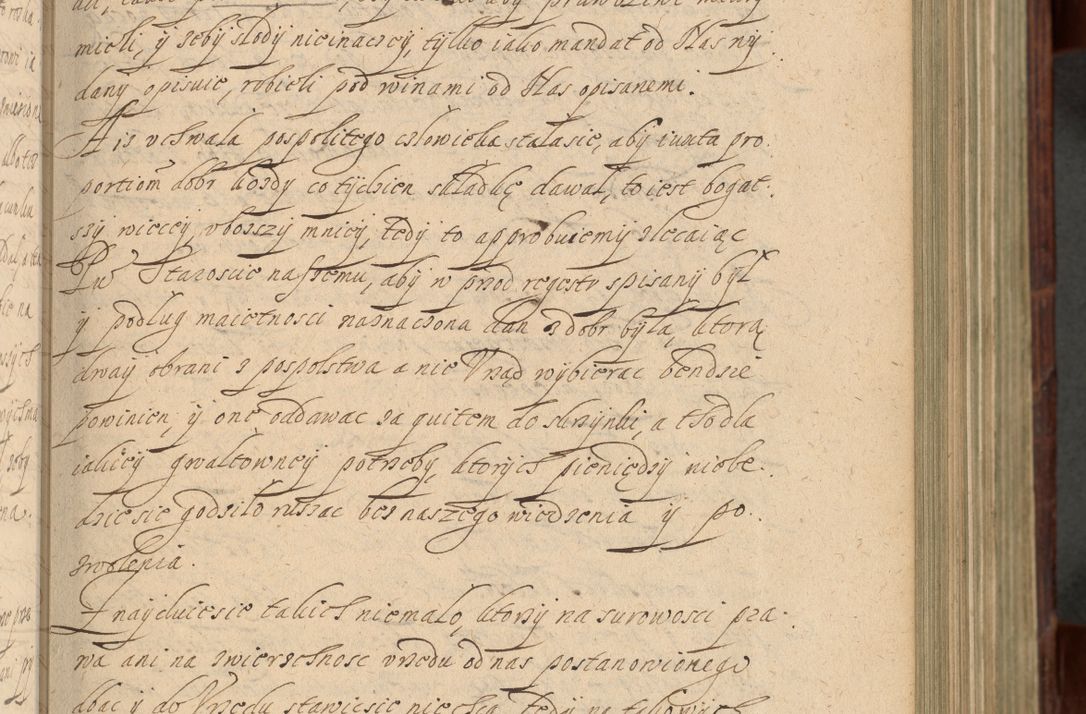 mieli, y zeby słody nieinaczey, tylko iako mandat od Nas niy
dany opisuie, robieli pod winami od Nas opisanemi.
A iz vchwała pospolitego człowieka stałasie, aby iuxta pro
portiom dobr kozdy co tydzien składkę dawał, to iest bogat
szy więcey, vbozszy mniey, tedy to approbuiemy zlecaiąc
Pu Staroscie naszemu, aby w przod regestr spisany był
y podług maietnosci naznaczona dan z dobr była, ktorą
dway obrani z pospolstwa a nie Vrząd wybierac bendzie
powinien, y one oddawac za quitem do skrzynki, a to dla
iakiey gwałtowney potrzeby, ktorych pieniędzy niebe
dzie sie godziło ruszac bez naszego wiedzenia y po
zwolenia.
Znayduie sie takich niemało, ktorzy na surowosci pra
wa ani na zwierzchnosc vrzędu od nas postanowionego
dbac y do Vrzędu stawicsie niechcą, Tedy na takowych